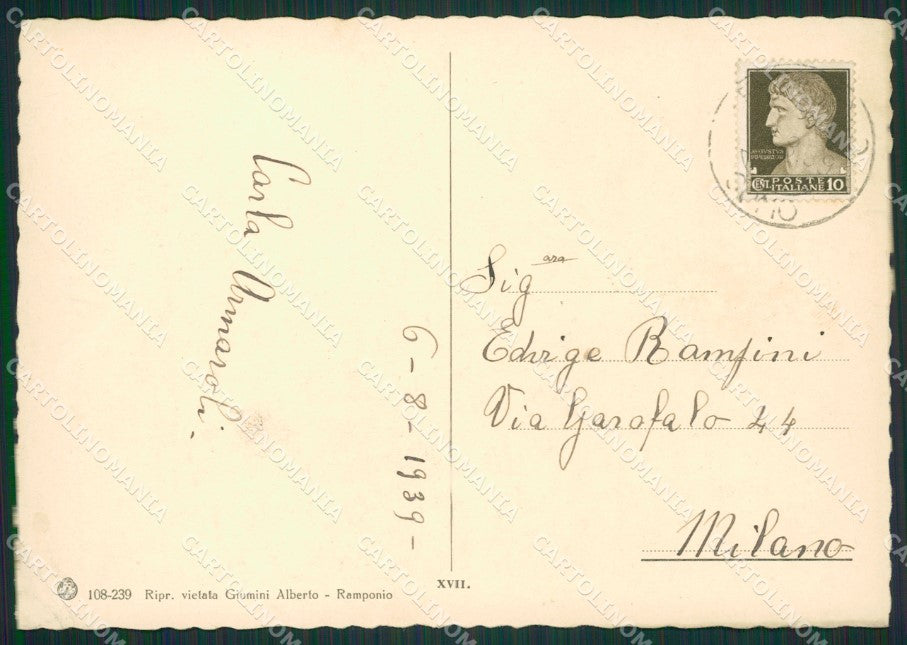 Carla Annaroli.
6-8-1939-
AVGVSTVS
CENT. POSTE 10
ITALIANE
Sig.ara
Edvige Rampini
Via Garofalo 44
Milano
XVII.
108-239 Ripr. vietata Giumini Alberto - Ramponio
CARTOLINOMANIA